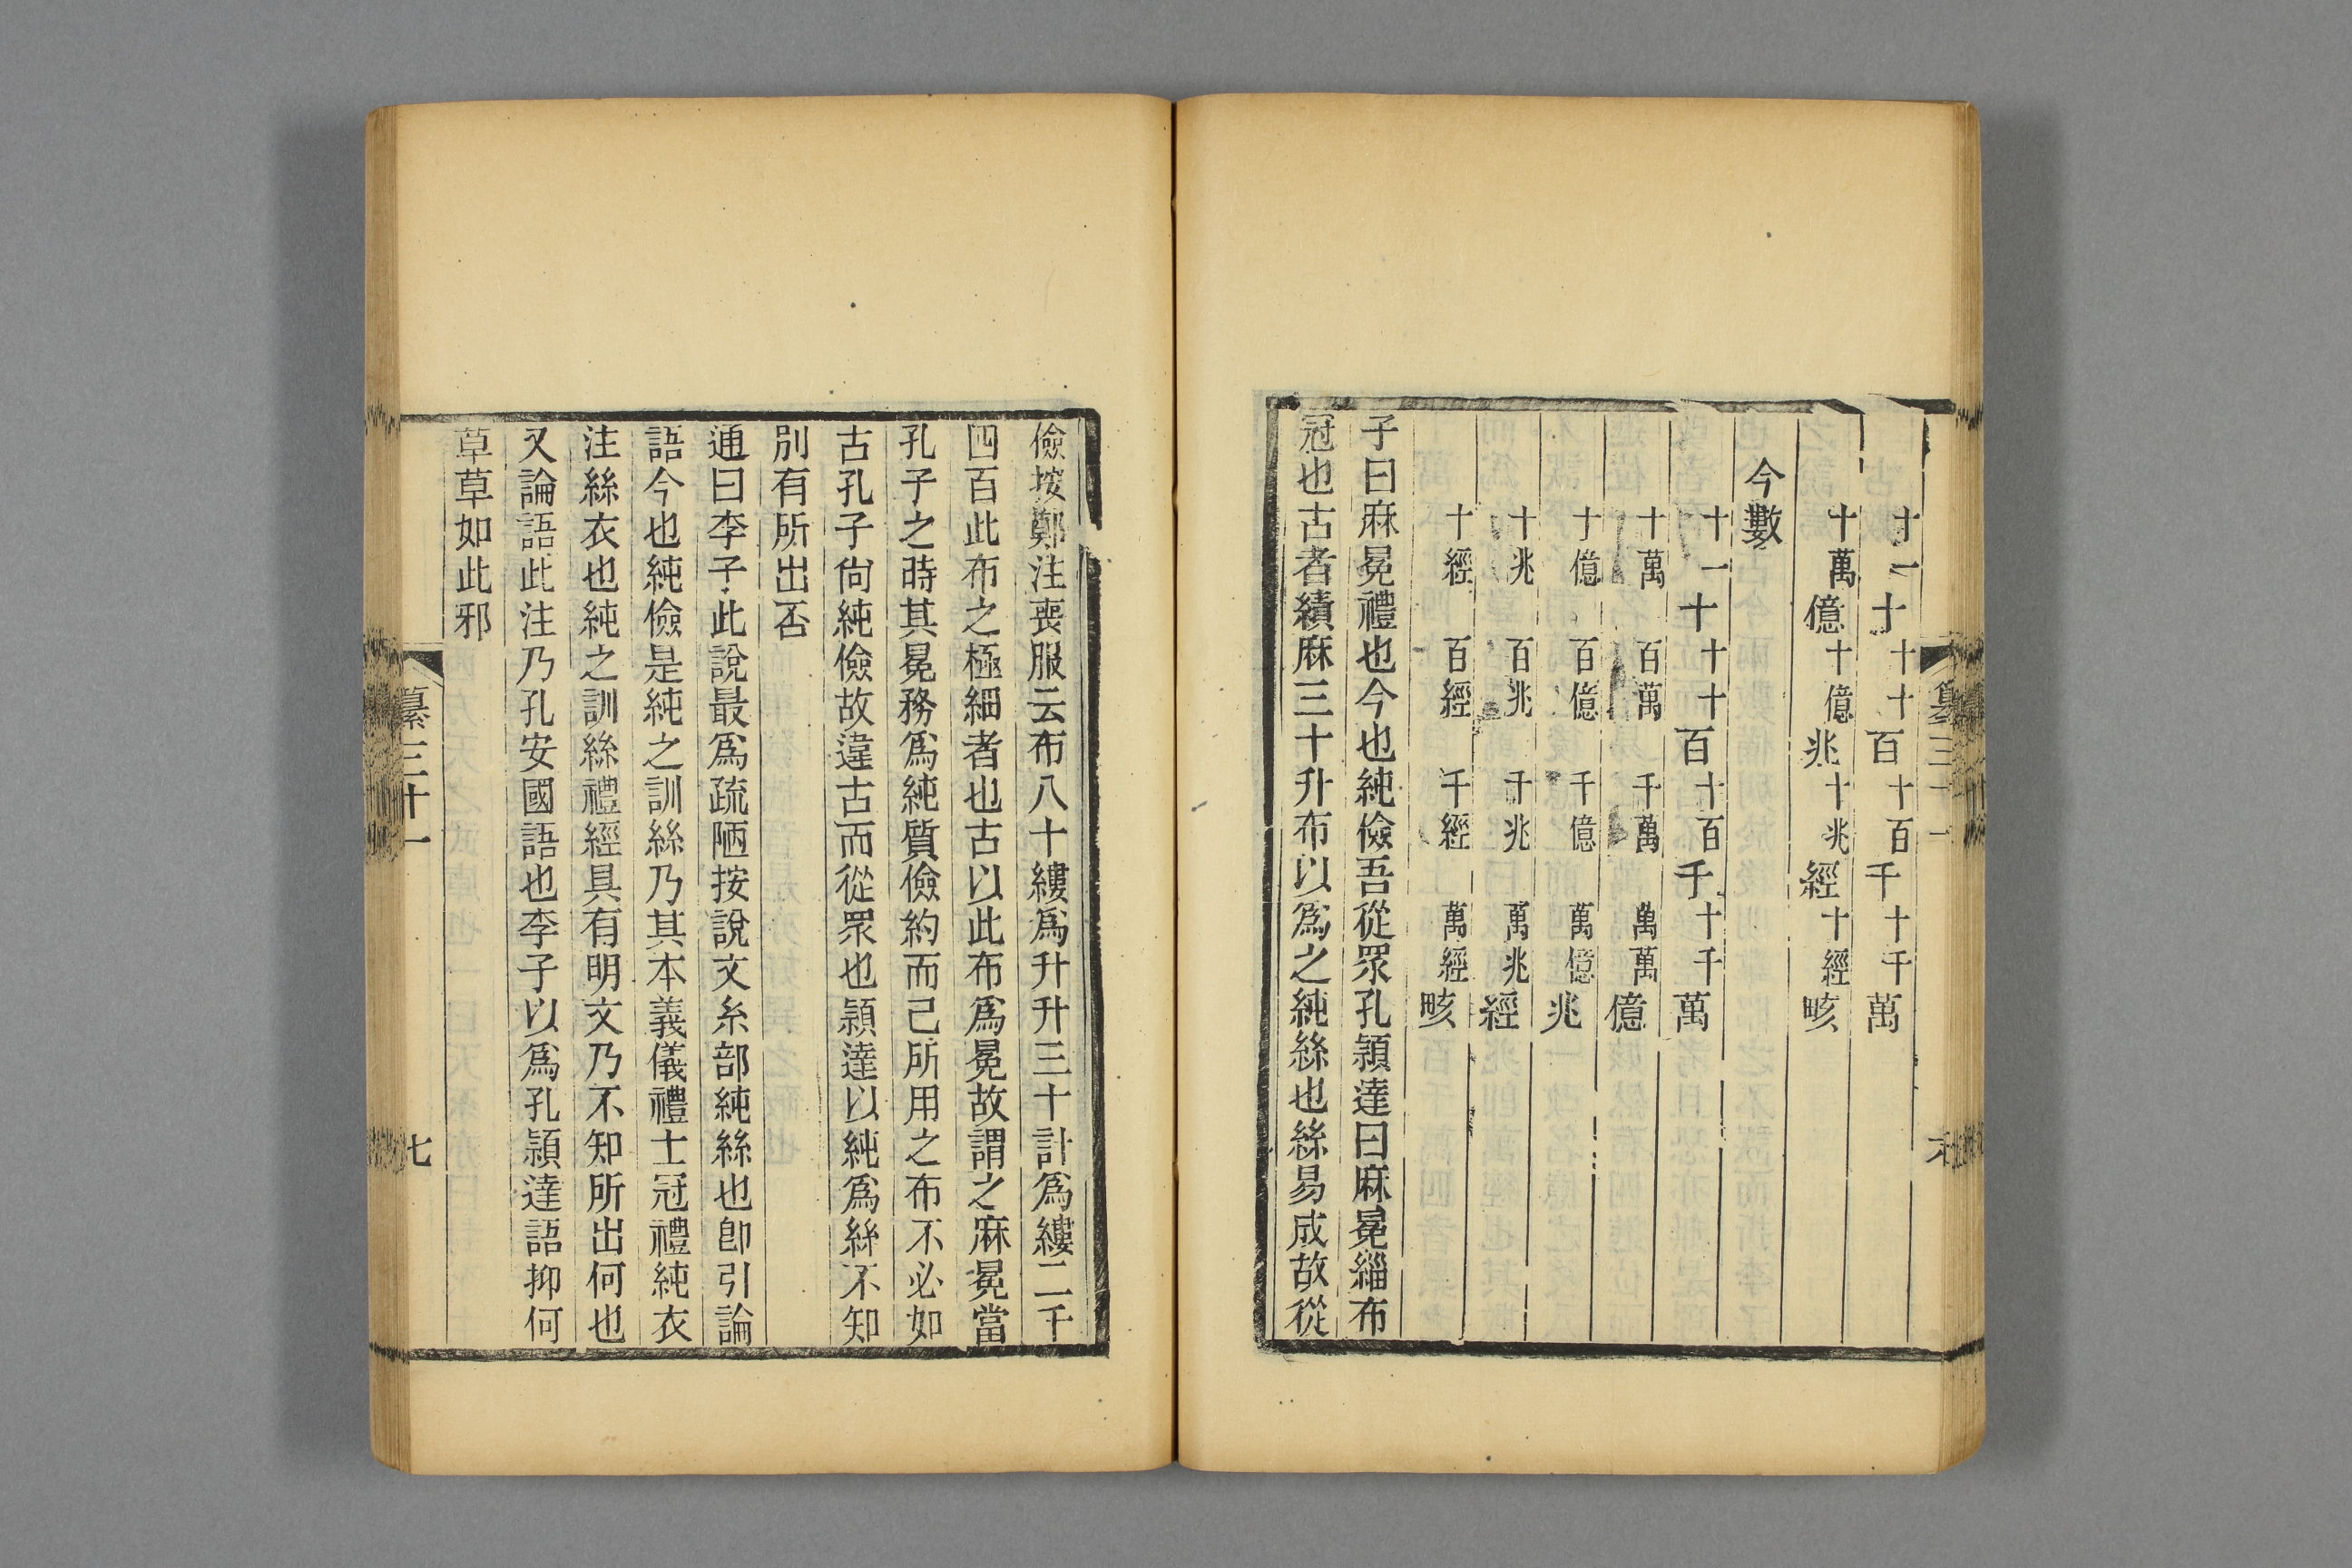 十一十十十百十百千十千萬
十萬億十億兆十兆經十經畡
今數
十一十十十百十百千十千萬
十萬百萬千萬萬萬億
十億百億千億萬億兆
十兆百兆千兆萬兆經
十經百經千經萬經畡
子曰麻冕禮也今也純儉吾從眾孔穎達曰麻冕緇布
冠也古者績麻三十升布以爲之純絲也絲易成故從
儉按鄭注喪服云布八十縷爲升升三十計爲縷二千
四百此布之極細者也古以此布爲冕故謂之麻冕當
孔子之時其冕務爲純質儉約而已所用之布不必如
古孔子尙純儉故違古而從眾也穎達以純爲絲不知
別有所出否
通曰李子此說最爲疏陋按說文糸部純絲也卽引論
語今也純儉是純之訓絲乃其本義儀禮士冠禮純衣
注絲衣也純之訓絲禮經具有明文乃不知所出何也
又論語此注乃孔安國語也李子以爲孔穎達語抑何
草草如此邪
纂三十一
七